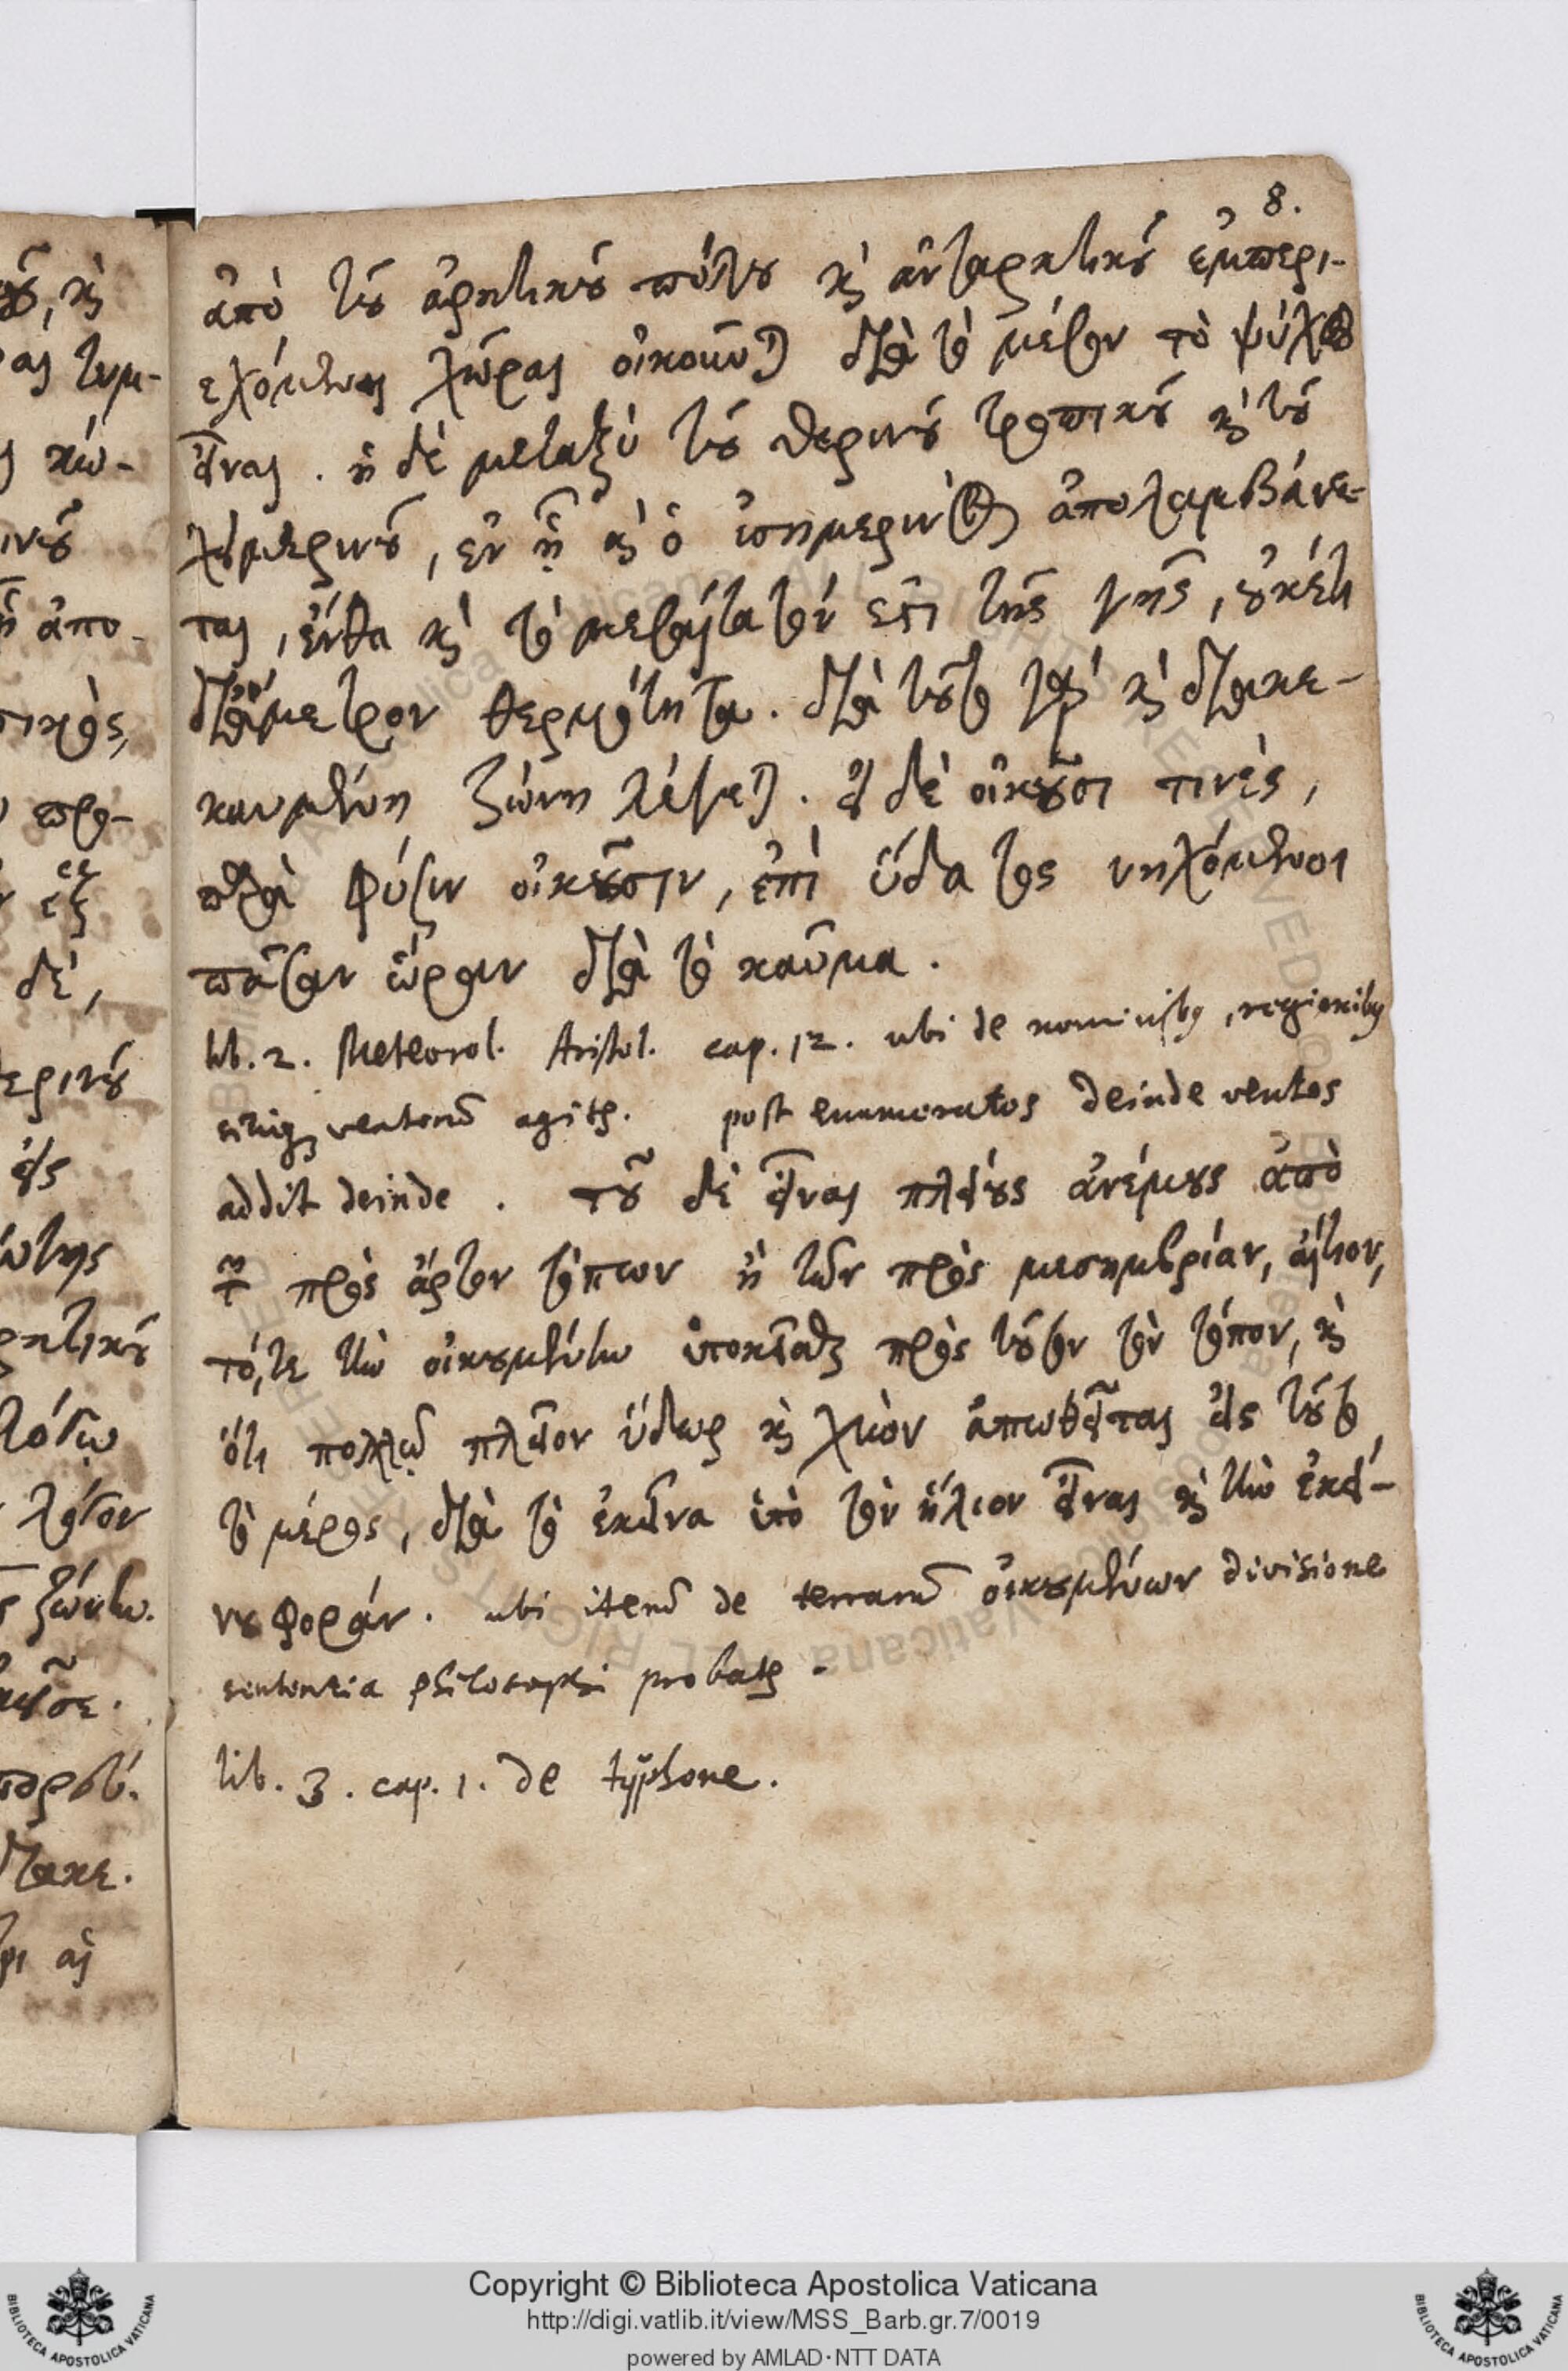 8.
ἀπὸ τοῦ ἀρκτικοῦ πόλου καὶ ἀνταρκτικοῦ ἐμπερι-
εχόμεναι χῶραι οἰκοῦνται διὰ τὸ μέγα τὸ ψύχος
εἶναι. ἡ δὲ μεταξὺ τοῦ θερινοῦ τροπικοῦ καὶ τοῦ
χειμερινοῦ, ἐν ᾗ καὶ ὁ ἰσημερινὸς ἀπολαμβάνε-
ται, ἔνθα καὶ τὸ μεσαίτατον ἐστι τῆς γῆς, οὐκέτι
διάμετρον θερμότητα. διὰ τοῦτο γὰρ καὶ διακε-
καυμένη ζώνη λέγεται. εἰ δὲ οἰκοῦσι τινὲς,
παρὰ φύσιν οἰκοῦσιν, ἐπὶ ὕδατος νηχόμενοι
πᾶσαν ὥραν διὰ τὸ καῦμα.
lib. 2. Meteorol. Aristot. cap. 12. ubi de nominibus, regionibus
situque ventorum agitur. post enumeratos deinde ventos
addit deinde. τοῦ δὲ εἶναι πλείους ἀνέμους ἀπὸ
τῶν πρὸς ἄρκτον τόπων ἢ τῶν πρὸς μεσημβρίαν, αἴτιον,
τό, τε τὴν οἰκουμένην ὑποκεῖσθαι πρὸς τοῦτον τὸν τόπον, καὶ
ὅτι πολλῷ πλεῖον ὕδωρ καὶ χιὼν ἀπωθεῖται εἰς τοῦτο
τὸ μέρος, διὰ τὸ ἐκεῖνα ὑπὸ τὸν ἥλιον εἶναι καὶ τὴν ἐκεί-
νου φοράν. ubi iterum de terrarum οἰκουμένων divisione
sententia philosophi probatur.
lib. 3. cap. 1. de typhone.
Copyright © Biblioteca Apostolica Vaticana
http://digi.vatlib.it/view/MSS_Barb.gr.7/0019
powered by AMLAD·NTT DATA
BIBLIOTECA APOSTOLICA VATICANA
BIBLIOTECA APOSTOLICA VATICANA